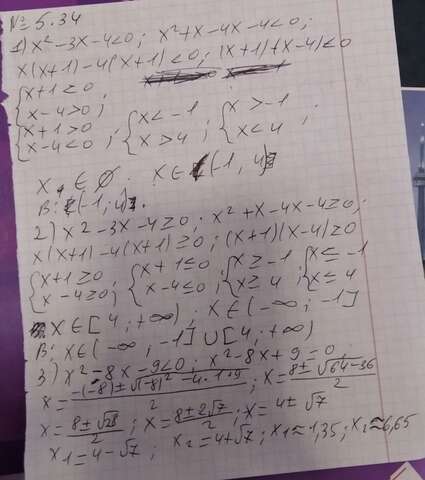 № 5.34
1) x² - 3x - 4 < 0; x² + x - 4x - 4 < 0;
x(x+1) - 4(x+1) < 0; (x+1)(x-4) < 0
{x+1 ≤ 0
{x-4 > 0;
{x+1 > 0
{x-4 < 0; {x < -1 {x > 4; {x > -1 {x < 4;
x ∈ ∅. x ∈ (-1, 4)
В: (-1; 4).
2) x² - 3x - 4 ≥ 0; x² + x - 4x - 4 ≥ 0;
x(x+1) - 4(x+1) ≥ 0; (x+1)(x-4) ≥ 0
{x+1 ≥ 0 {x+1 ≤ 0 {x ≥ -1 {x ≤ -1
{x-4 ≥ 0; {x-4 ≤ 0; {x ≥ 4; {x ≤ 4
x ∈ [4; +∞); x ∈ (-∞; -1]
В: x ∈ (-∞; -1] ∪ [4; +∞)
3) x² - 8x - 9 < 0; x² - 8x + 9 = 0;
x = (-(-8) ± √((-8)² - 4·1·9))/2; x = (8 ± √(64-36))/2
x = (8 ± √28)/2; x = (8 ± 2√7)/2; x = 4 ± √7
x1 = 4 - √7; x2 = 4 + √7; x1 ≈ 1,35; x2 ≈ 6,65